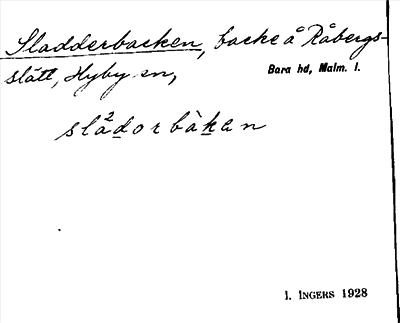 Sladderbacken, backe å Råbergs-
slätt, Hyby sn,
Bara hd, Malm. l.
slädorbàkan
I. INGERS 1928